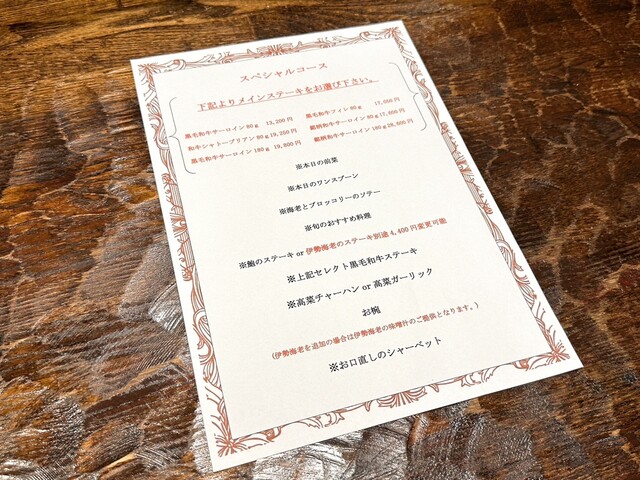 スペシャルコース
下記よりメインステーキをお選び下さい。
黒毛和牛サーロイン80g 13,200円 黒毛和牛フィレ80g 17,600円
和牛シャトーブリアン80g 19,250円 銘柄和牛サーロイン80g 17,600円
黒毛和牛サーロイン160g 19,800円 銘柄和牛サーロイン160g 28,600円
※本日の前菜
※本日のワンスプーン
※海老とブロッコリーのソテー
※旬のおすすめ料理
※鮑のステーキ or 伊勢海老のステーキ別途4,400円変更可能
※上記セレクト黒毛和牛ステーキ
※高菜チャーハン or 高菜ガーリック
お椀
(伊勢海老を追加の場合は伊勢海老の味噌汁のご提供となります。)
※お口直しのシャーベット